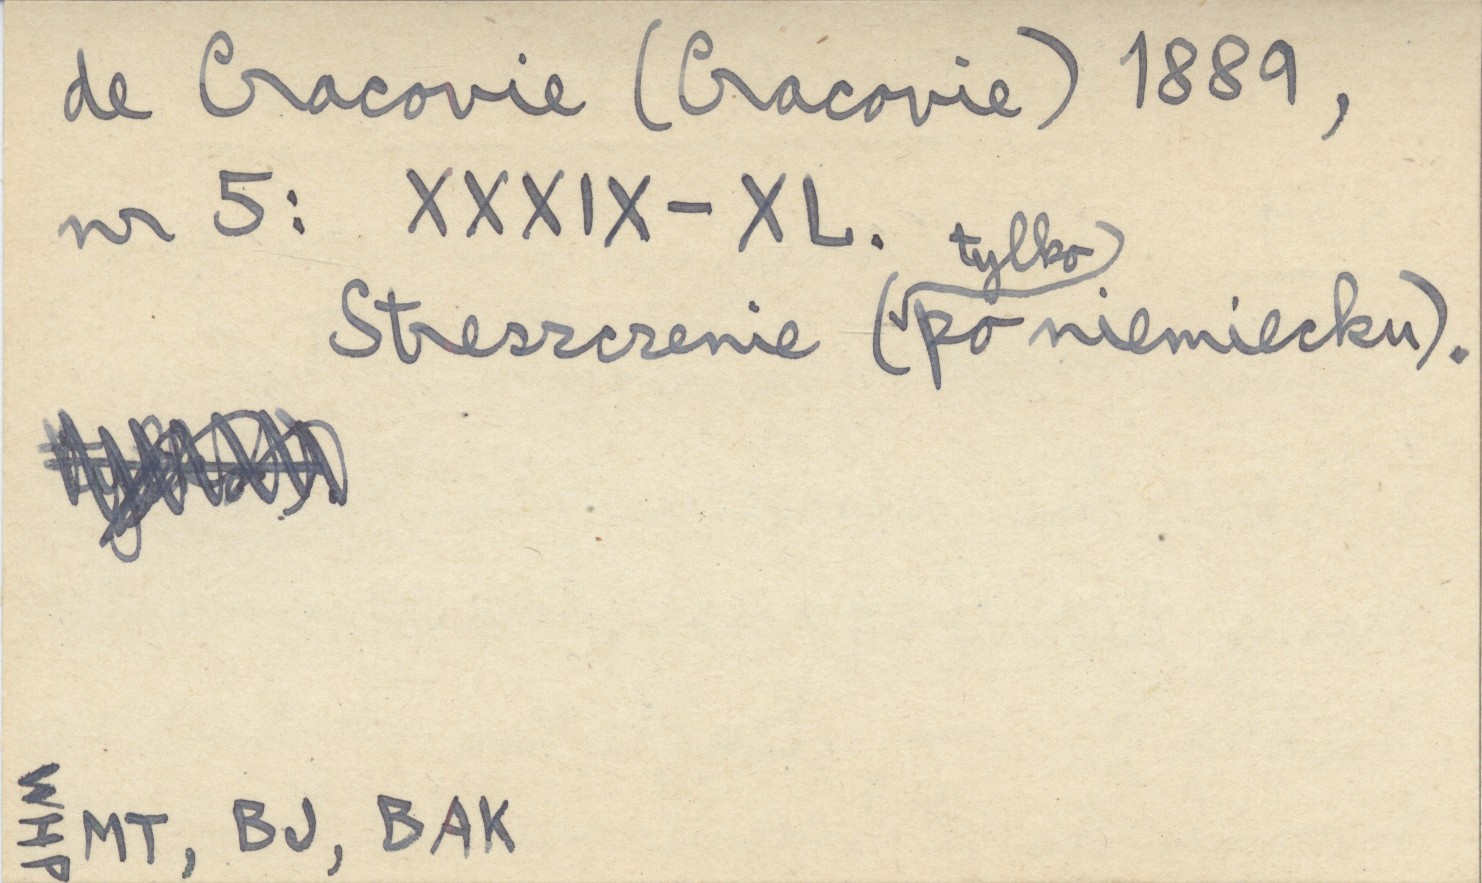 de Cracovie (Cracovie) 1889,
nr 5: XXXIX-XL.
Streszczenie (tylko po niemiecku).
WHP
MT, BJ, BAK